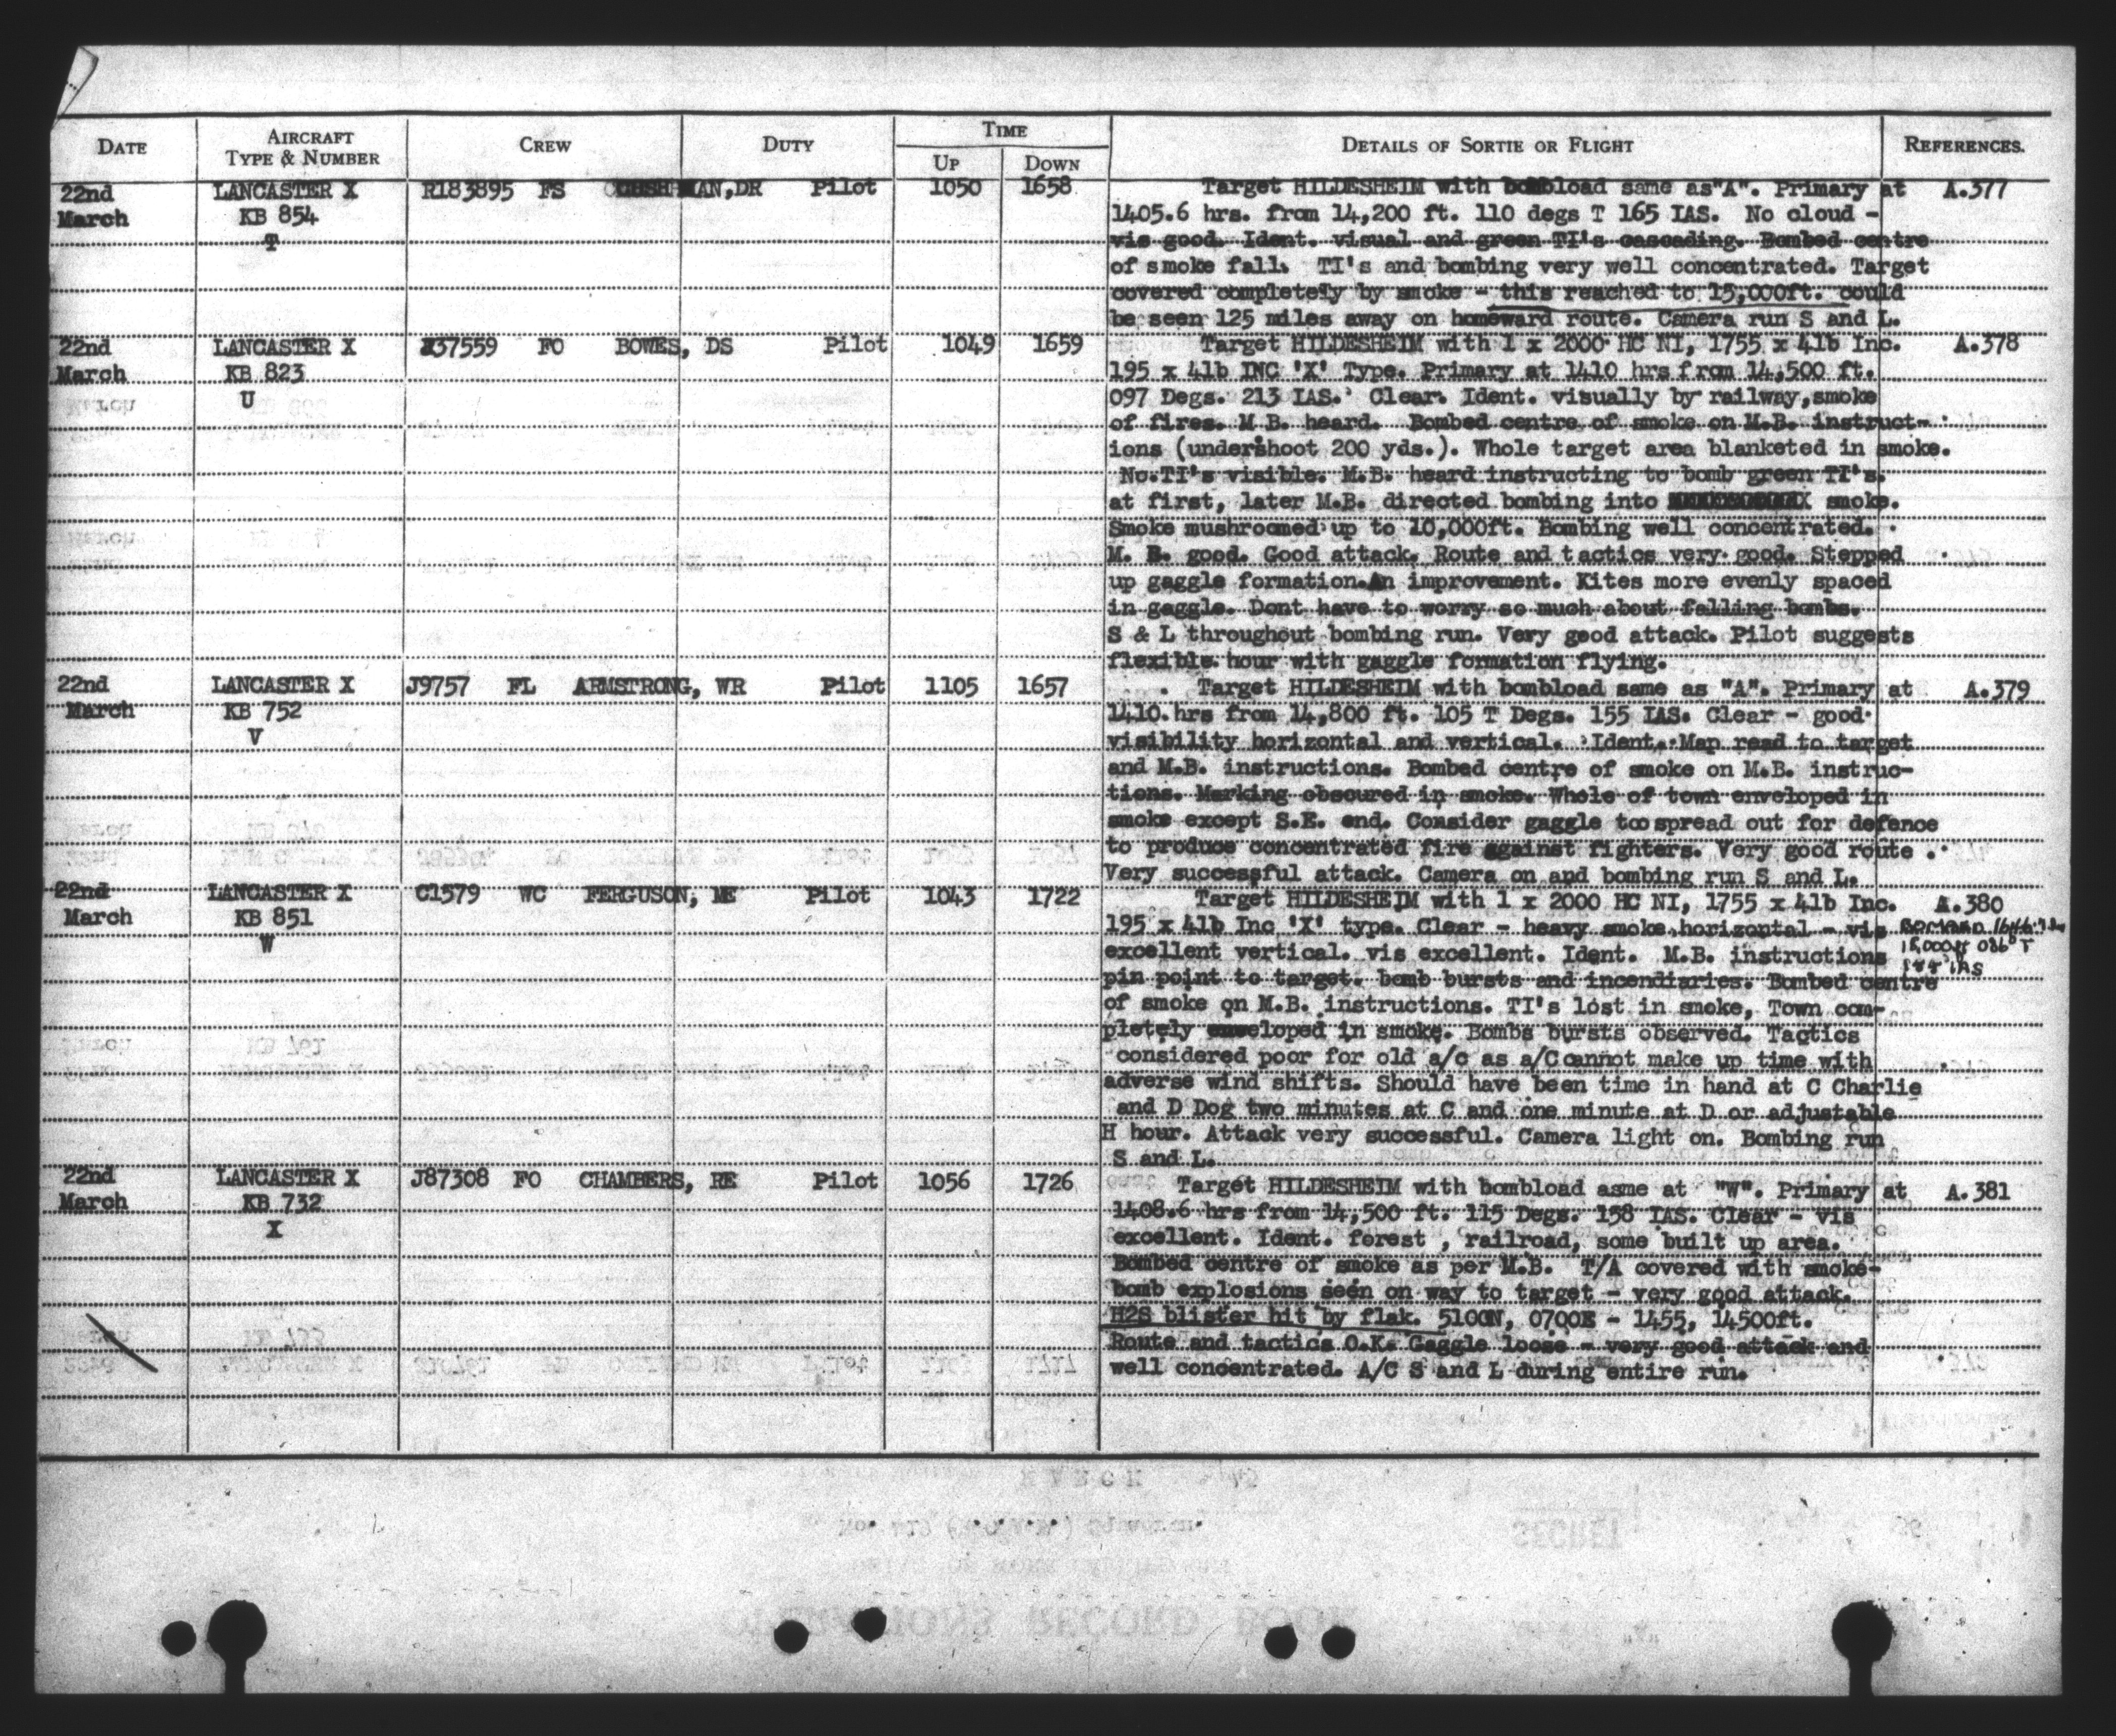 DATE AIRCRAFT TYPE & NUMBER CREW DUTY TIME UP DOWN DETAILS OF SORTIE OR FLIGHT REFERENCES.
22nd LANCASTER X R183895 FS CUSHMAN,DR Pilot 1050 1658 Target HILDESHEIM with bombload same as"A". Primary at A.377
March KB 854 1405.6 hrs. from 14,200 ft. 110 degs T 165 IAS. No cloud -
T vis good. Ident. visual and green TI's cascading. Bombed centre
of smoke fall. TI's and bombing very well concentrated. Target
covered completely by smoke - this reached to 15,000ft. could
be seen 125 miles away on homeward route. Camera run S and L.
22nd LANCASTER X J37559 FO BOWES, DS Pilot 1049 1659 Target HILDESHEIM with 1 x 2000 HC NI, 1755 x 4lb Inc. A.378
March KB 823 195 x 4lb INC 'X' Type. Primary at 1410 hrs from 14,500 ft.
U 097 Degs. 213 IAS. Clear. Ident. visually by railway,smoke
of fires. M B. heard. Bombed centre of smoke on M.B. instruct-
ions (undershoot 200 yds.). Whole target area blanketed in smoke.
No.TI's visible. M.B. heard instructing to bomb green TI's.
at first, later M.B. directed bombing into smoke.
Smoke mushroomed up to 10,000ft. Bombing well concentrated.
M. B. good. Good attack. Route and tactics very good. Stepped
up gaggle formation.An improvement. Kites more evenly spaced
in gaggle. Dont have to worry so much about falling bombs.
S & L throughout bombing run. Very good attack. Pilot suggests
flexible hour with gaggle formation flying.
22nd LANCASTER X J9757 FL ARMSTRONG, WR Pilot 1105 1657 Target HILDESHEIM with bombload same as "A". Primary at A.379
March KB 752 1410.hrs from 14,800 ft. 105 T Degs. 155 IAS. Clear - good
V visibility horizontal and vertical. Ident. Map read to target
and M.B. instructions. Bombed centre of smoke on M.B. instruc-
tions. Marking obscured in smoke. Whole of town enveloped in
smoke except S.E. end. Consider gaggle too spread out for defence
to produce concentrated fire against fighters. Very good route .
Very successful attack. Camera on and bombing run S and L.
22nd LANCASTER X C1579 WC FERGUSON, ME Pilot 1043 1722 Target HILDESHEIM with 1 x 2000 HC NI, 1755 x 4lb Inc. A.380
March KB 851 195 x 4lb Inc 'X' type. Clear - heavy smoke horizontal - vis
W excellent vertical. vis excellent. Ident. M.B. instructions
pin point to target. bomb bursts and incendiaries. Bombed centre
of smoke on M.B. instructions. TI's lost in smoke, Town com-
pletely enveloped in smoke. Bombs bursts observed. Tactics
considered poor for old a/c as a/C cannot make up time with
adverse wind shifts. Should have been time in hand at C Charlie
and D Dog two minutes at C and one minute at D or adjustable
H hour. Attack very successful. Camera light on. Bombing run
S and L.
22nd LANCASTER X J87308 FO CHAMBERS, RE Pilot 1056 1726 Target HILDESHEIM with bombload asme at "W". Primary at A.381
March KB 732 1408.6 hrs from 14,500 ft. 115 Degs. 158 IAS. Clear - vis
X excellent. Ident. forest , railroad, some built up area.
Bombed centre of smoke as per M.B. T/A covered with smoke-
bomb explosions seen on way to target - very good attack.
H2S blister hit by flak. 5100N, 0700E - 1455, 14500ft.
Route and tactics O.K. Gaggle loose - very good attack and
well concentrated. A/C S and L during entire run.